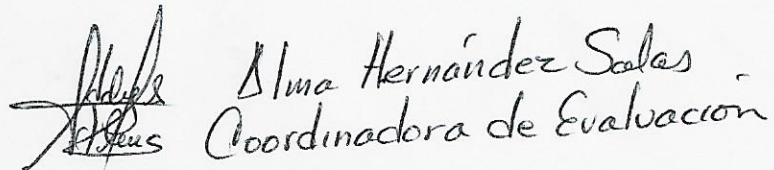 Alma Hernández Salas
Coordinadora de Evaluación